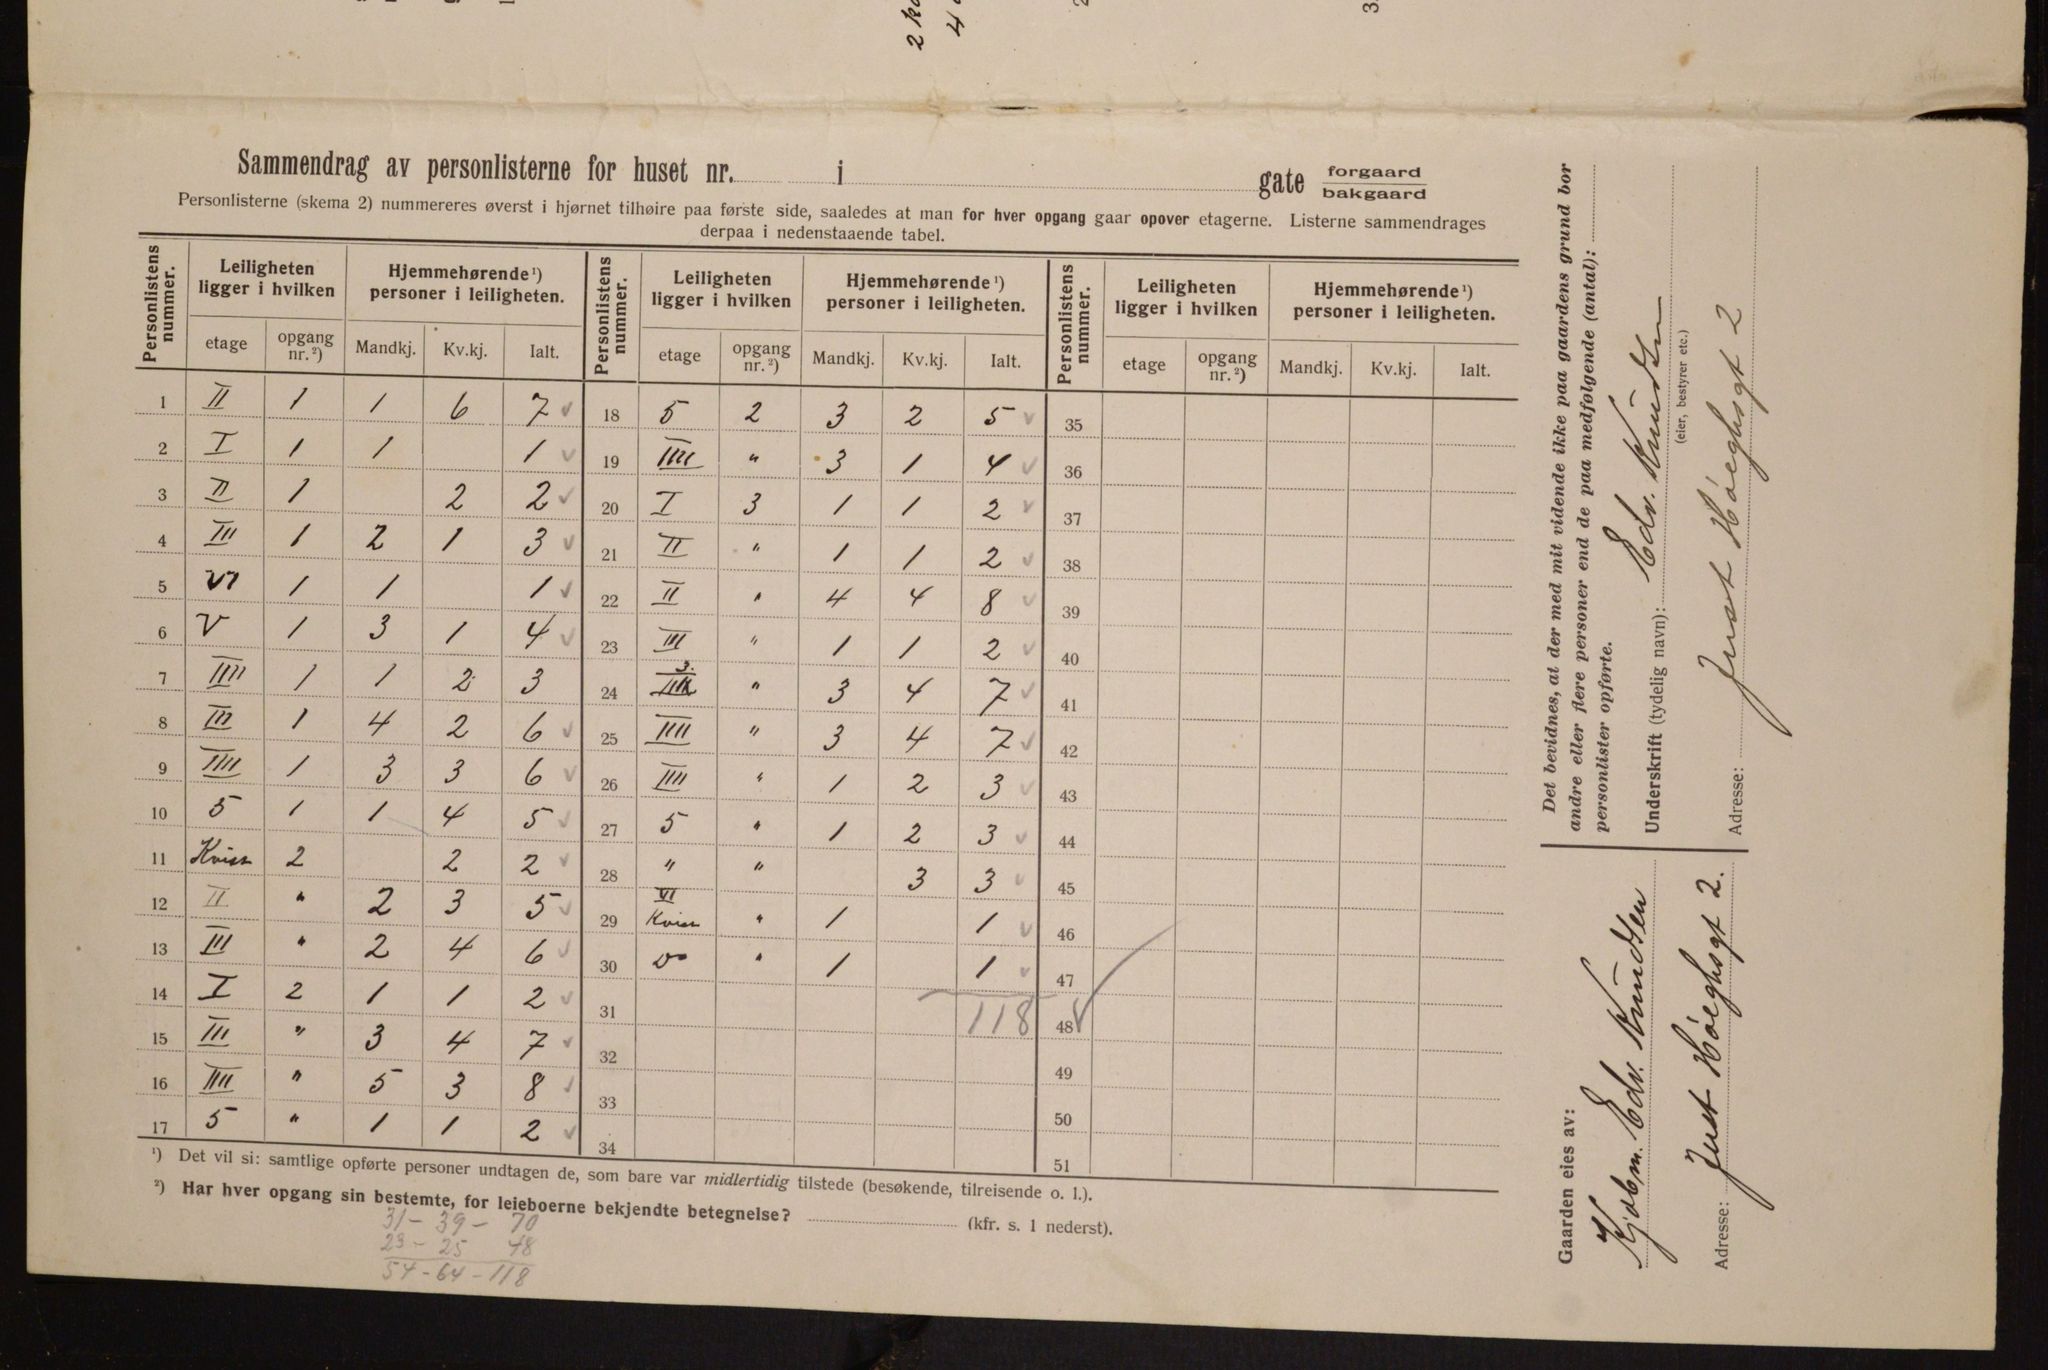 Sammendrag av personlisterne for huset nr. i gate forgaard bakgaard
Personlisterne (skema 2) nummereres øverst i hjørnet tilhøire paa første side, saaledes at man for hver opgang gaar opover etagerne. Listerne sammendrages
derpaa i nedenstaaende tabel.
Personlistens nummer. Leiligheten ligger i hvilken Hjemmehørende¹) personer i leiligheten. Personlistens nummer. Leiligheten ligger i hvilken Hjemmehørende¹) personer i leiligheten. Personlistens nummer. Leiligheten ligger i hvilken Hjemmehørende¹) personer i leiligheten.
etage opgang nr.²) Mandkj. Kv.kj. Ialt. etage opgang nr.²) Mandkj. Kv.kj. Ialt. etage opgang nr.²) Mandkj. Kv.kj. Ialt.
1 II 1 1 6 7 18 5 2 3 2 5 35
2 I 1 1 1 19 IIII " 3 1 4 36
3 II 1 2 2 20 I 3 1 1 2 37
4 III 1 2 1 3 21 II " 1 1 2 38
5 VI 1 1 1 22 II " 4 4 8 39
6 V 1 3 1 4 23 III " 1 1 2 40
7 IIII 1 1 2 3 24 3. " 3 4 7 41
8 III 1 4 2 6 25 IIII " 3 4 7 42
9 IIII 1 3 3 6 26 IIII " 1 2 3 43
10 5 1 1 4 5 27 5 " 1 2 3 44
11 Kvist 2 2 2 28 " " 3 3 45
12 II " 2 3 5 29 VI Kvist " 1 1 46
13 III " 2 4 6 30 do " 1 1 47
14 I 2 1 1 2 31 118 48
15 III " 3 4 7 32 49
16 IIII " 5 3 8 33 50
17 5 " 1 1 2 34 51
¹) Det vil si: samtlige opførte personer undtagen de, som bare var midlertidig tilstede (besøkende, tilreisende o. l.).
²) Har hver opgang sin bestemte, for leieboerne bekjendte betegnelse? (kfr. s. 1 nederst).
31 - 39 - 70
23 - 25 48
54 - 64 - 118
Det bevidnes, at der med mit vidende ikke paa gaardens grund bor
andre eller flere personer end de paa medfolgende (antal):
personlister opførte.
Underskrift (tydelig navn): Edv. Knudsen
(eier, bestyrer etc.)
Adresse: Just Høeghsgt 2
Gaarden eies av:
Kjøbm. Edv. Knudsen
Adresse: Just Høeghsgt 2.